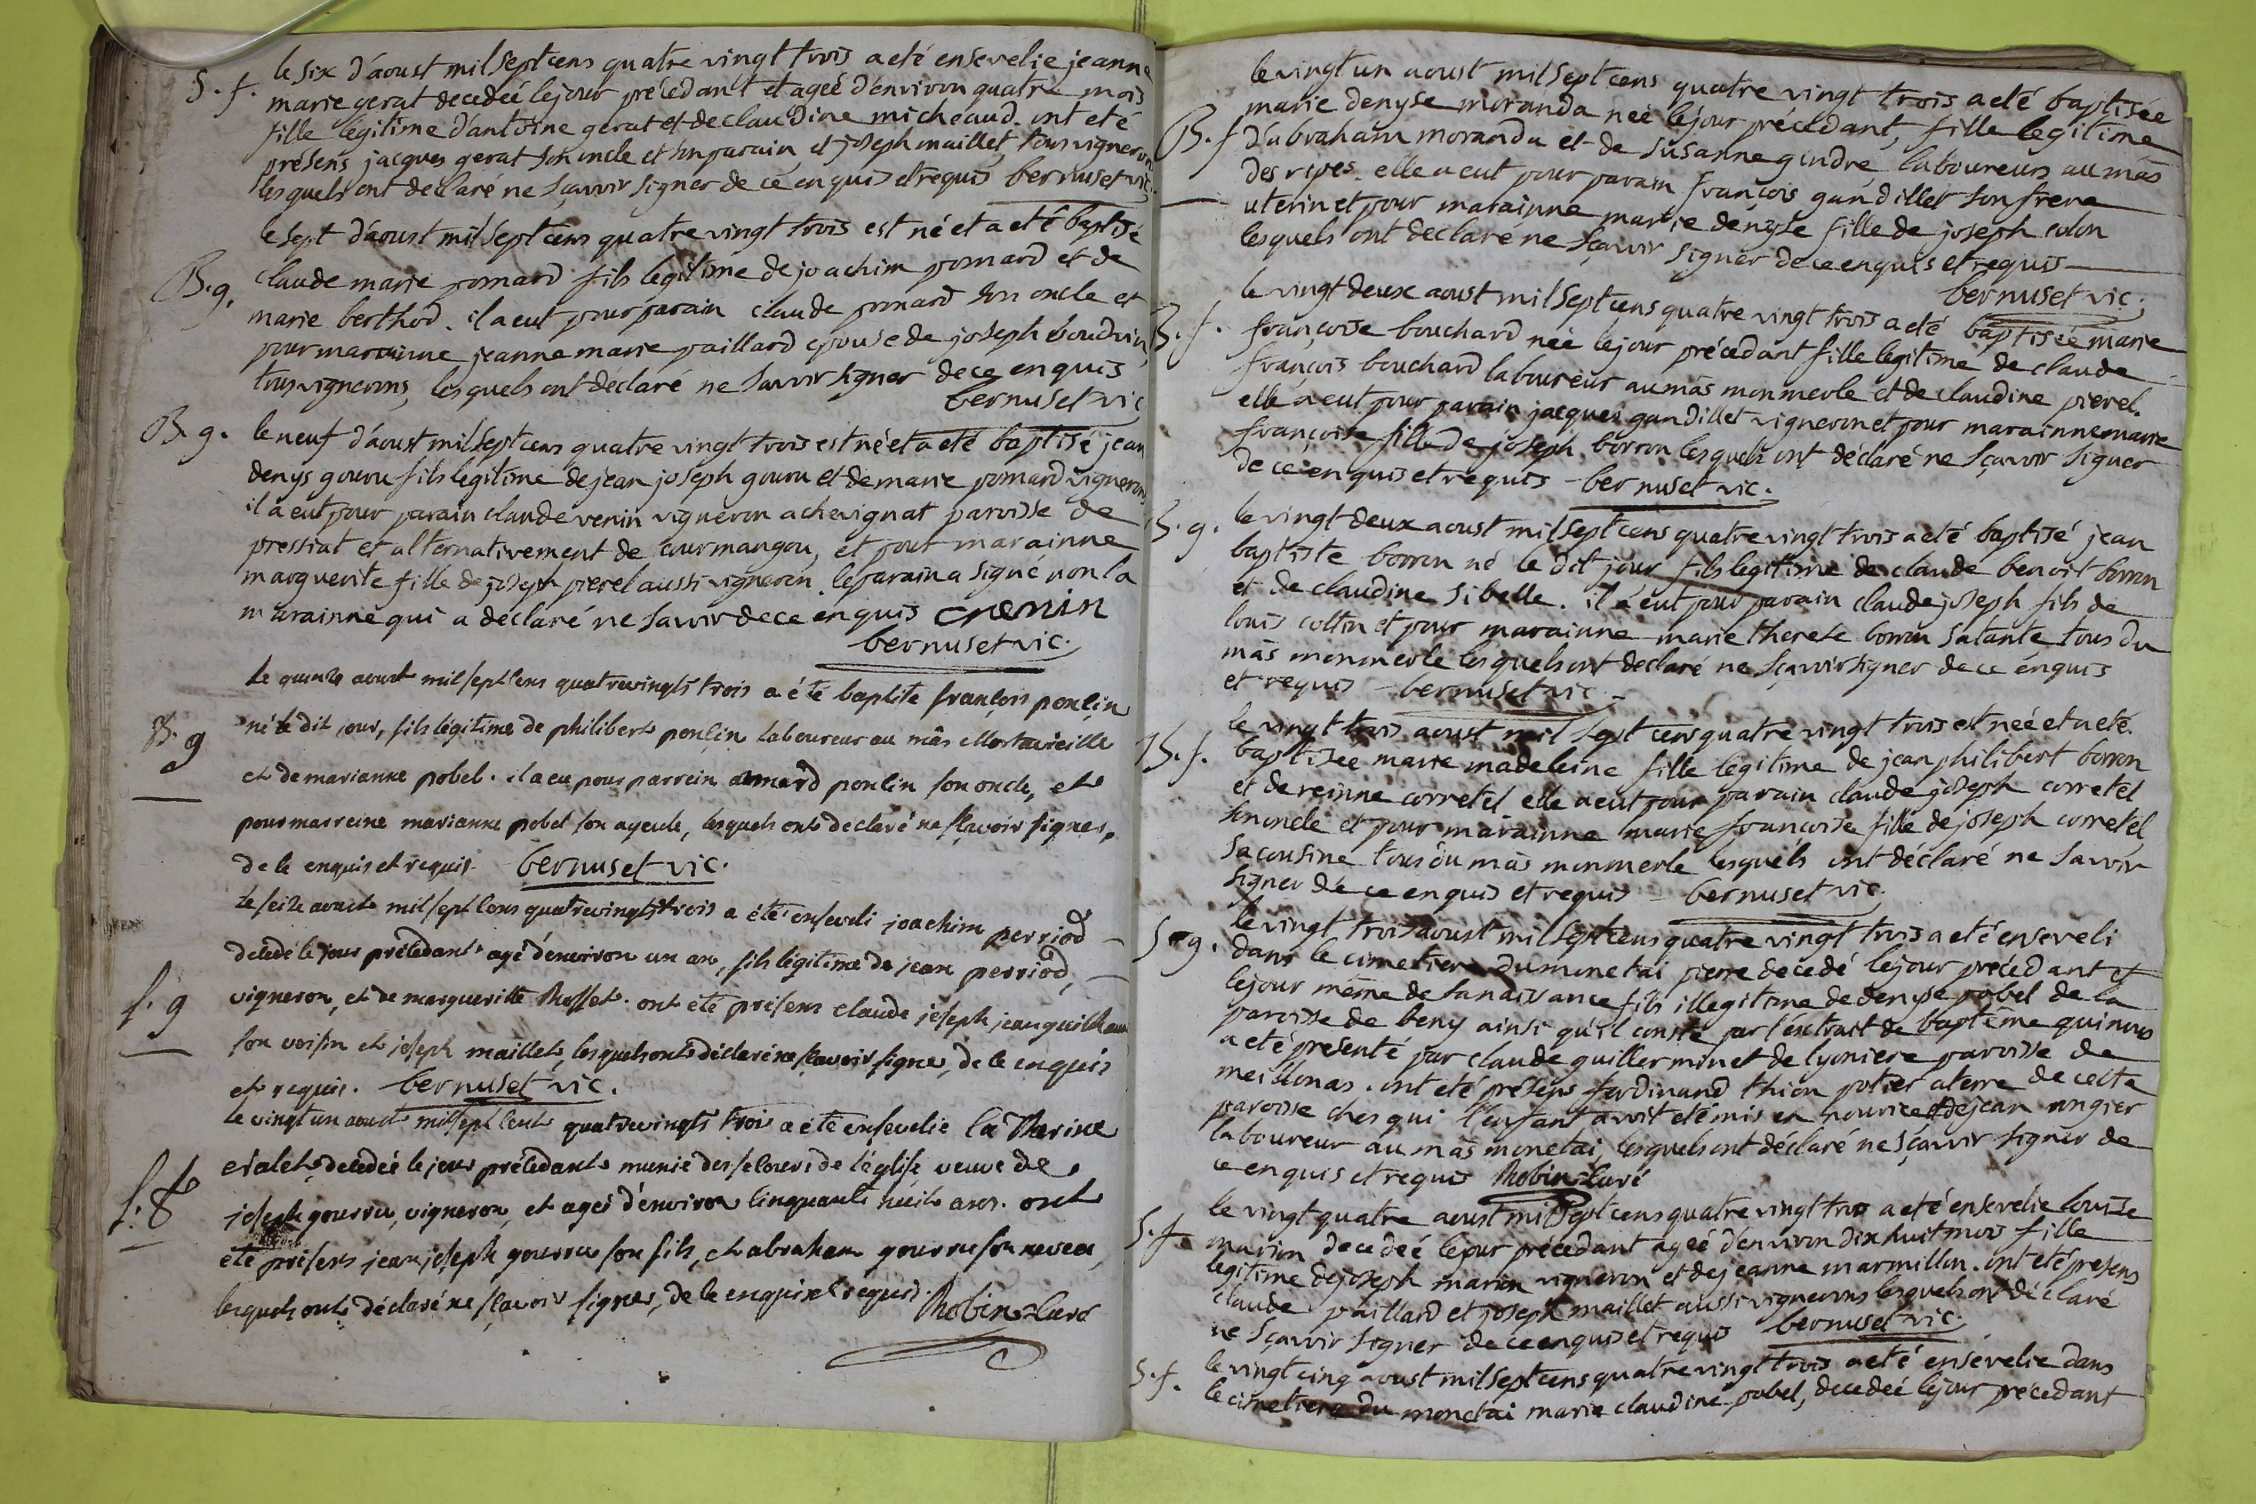 S. f. le six d'aoust mil sept cens quatre vingt trois a eté ensevelie jeanne
marie gerat decedeé le jour précédant et ageé d'environ quatre mois
fille legitime d'antoine gerat et de claudine micheaud. ont eté
présens jacques gerat son oncle et son parain et joseph maillet, tous vignerons
lesquels ont declaré ne sçavoir signer de ce enquis et requis bernuset vic.
le sept d'aoust mil sept cens quatre vingt trois est né et a eté baptisé
B. g. claude marie pomard fils legitime de joachim pomard et de
marie berthod. il a eut pour parain claude pomard son oncle et
pour marainne jeanne marie paillard epouse de joseph boudvin,
tous vignerons, lesquels ont déclaré ne savoir signer de ce enquis
bernuset vic
B. g. le neuf d'aoust mil sept cens quatre vingt trois est né et a eté baptisé jean
denys gouru fils legitime de jean joseph gouru et de marie pomard vignerons
il a eut pour parain claude venin vigneron a chevignat paroisse de
pressiat et alternativement de courmangou, et pour marainne
marguerite fille de joseph pierel aussi vigneron. le parain a signé non la
marainne qui a déclaré ne savoir de ce enquis c venin
bernuset vic.
Le quinze aoust mil sept cens quatrevingts trois a été baptisé françois ponçin
B. g né le dit jour, fils légitime de philibert ponçin laboureur au mâs
et de marianne pobel. il a eu pour parrein aimard ponçin son oncle, et
pour marreine marianne pobel son ayeule, lesquels ont declaré ne sçavoir signer,
de ce enquis et requis. bernuset vic.
Le seize aoust mil sept cens quatrevingts trois a été enseveli joachim perriod
décédé le jour précédant agé d'environ un an, fils légitime de jean perriod,
S. g vigneron, et de margueritte Rosset. ont été présens claude joseph jeanguillaume
son voisin et joseph maillet, lesquels ont déclaré ne sçavoir signer, de ce enquis
et requis. bernuset vic.
le vingt un aoust mil sept cents quatrevingts trois a été ensevelie Catherine
S. f vialet, decedeé le jour précédant munie des secours de l'église veuve de
joseph gourru, vigneron, et agée d'environ cinquante huit ans. ont
été présens jean joseph gourru son fils, et abraham gourru son neveu,
lesquels ont déclaré ne sçavoir signer, de ce enquis et requis. Robin curé
le vingt un aoust mil sept cens quatre vingt trois a eté baptisée
marie denyse moranda neé le jour précédant, fille legitime
B. f d'abraham moranda et de susanne gindre, laboureurs au mâs
des ripes. elle a eut pour parain françois gandillet son frere
uterin et pour marainne marie denyse fille de joseph colon
lesquels ont declaré ne sçavoir signer de ce enquis et requis
bernuset vic.
le vingt deux aoust mil sept cens quatre vingt trois a eté baptiseé marie
B. f. françoise bouchard neé le jour précédant fille legitime de claude
françois bouchard laboureur au mâs monmerle et de claudine pierel.
elle a eut pour parain jacques gandillet vigneron et pour marainne marie
françoise fille de joseph borron lesquels ont déclaré ne sçavoir signer
de ce enquis et requis bernuset vic.
B. g. le vingt deux aoust mil sept cens quatre vingt trois a eté baptisé jean
baptiste borron né le dit jour fils legitime de claude benoit borron
et de claudine sibelle. il a eut pour parain claude joseph fils de
louis cottin et pour marainne marie therese borron sa tante, tous du
mâs monmerle lesquels ont declaré ne sçavoir signer de ce enquis
et requis bernuset vic.
le vingt trois aoust mil sept cens quatre vingt trois est neé et a eté
B. f. baptiseé marie madeleine fille legitime de jean philibert borron
et de reinne corretel elle a eut pour parain claude joseph corretel
son oncle et pour marainne marie françoise fille de joseph corretel
sa cousine tous du mâs monmerle lesquels ont déclaré ne savoir
signer de ce enquis et requis bernuset vic.
le vingt trois aoust mil sept cens quatre vingt trois a eté enseveli
S. g. dans le cimetiere du monetai pierre decedé le jour précédant et
le jour même de sa naissance fils illegitime de denyse pobel de la
paroisse de beny ainsi qu'il conste par l'extrait de baptême qui nous
a eté présenté par claude guillerminet de lyoniere paroisse de
meillonas. ont eté présens ferdinand thion potier a terre de cette
paroisse ches qui l'enfant avoit eté mis en nourice et de jean
laboureur au mâs monetai, lesquels ont déclaré ne sçavoir signer de
ce enquis et requis Robin curé
le vingt quatre aoust mil sept cens quatre vingt trois a eté ensevelie louise
S. f. marion decedeé le jour précédant ageé d'environ dix huit mois fille
legitime de joseph marion vigneron et de jeanne marmillon. ont eté présens
claude paillard et joseph maillet aussi vignerons lesquels ont déclaré
ne sçavoir signer de ce enquis et requis bernuset vic.
S. f. le vingt cinq aoust mil sept cens quatre vingt trois a eté ensevelie dans
le cimetiere du monetai marie claudine pobel, decedeé le jour précédant